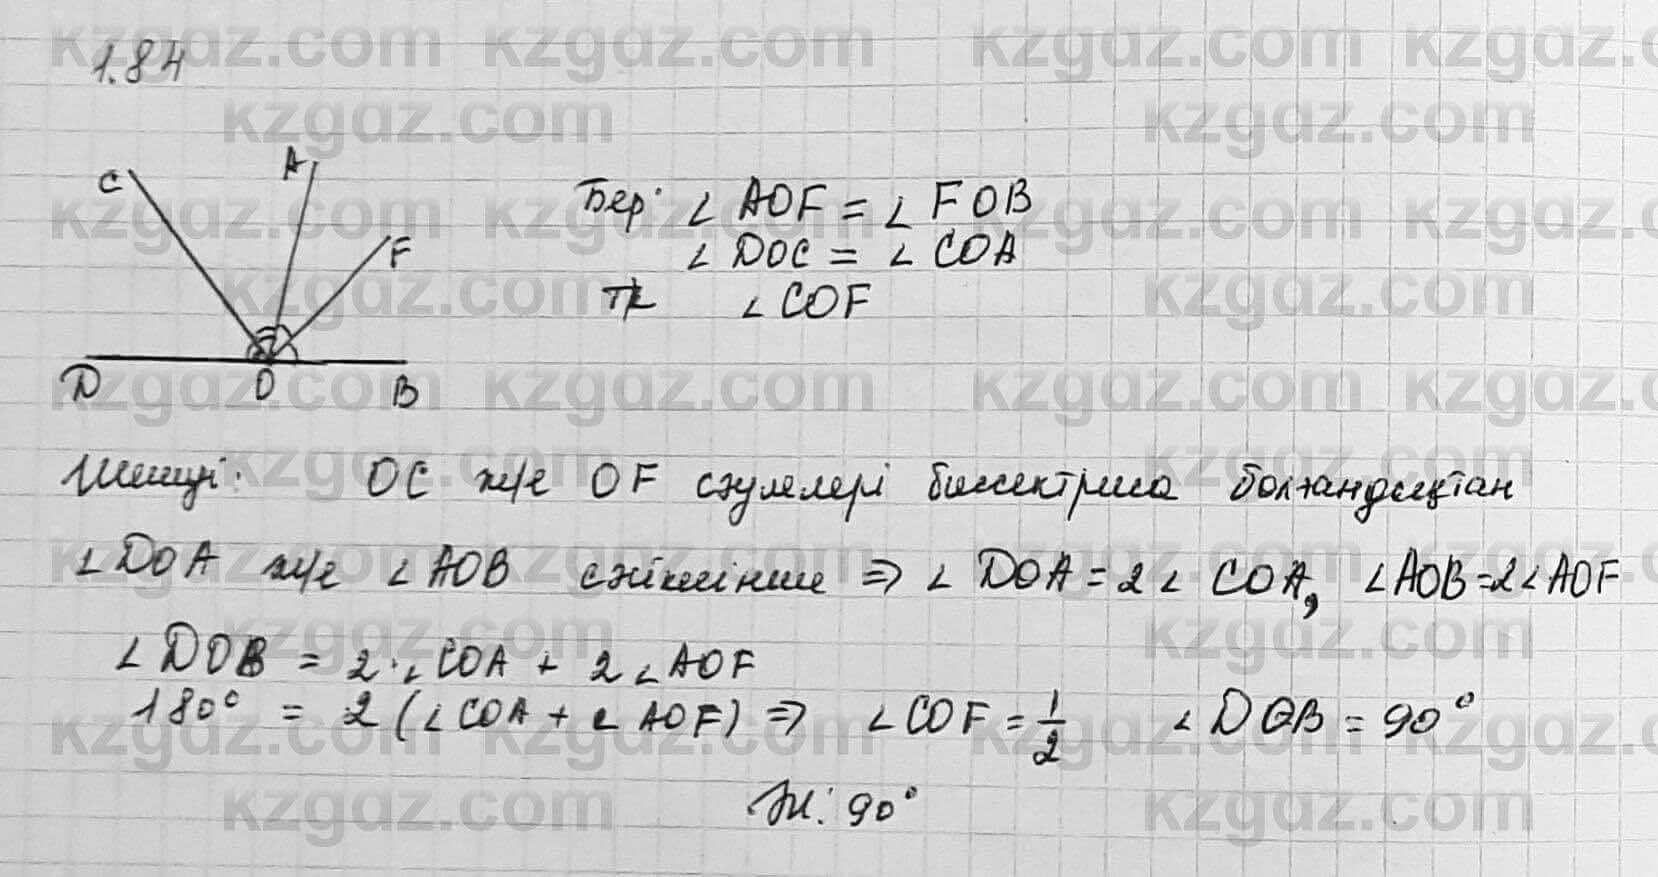 1.84
C
A
F
D
O
B
Бер: ∠AOF = ∠FOB
∠DOC = ∠COA
тк ∠COF
Шешуі: OC ж/е OF сәулелері биссектриса болғандықтан
∠DOA ж/е ∠AOB сәйкесінше => ∠DOA = 2∠COA, ∠AOB = 2∠AOF
∠DOB = 2·∠COA + 2∠AOF
180° = 2(∠COA + ∠AOF) => ∠COF = 1/2 ∠DOB = 90°
Ж: 90°
kzgdz.com